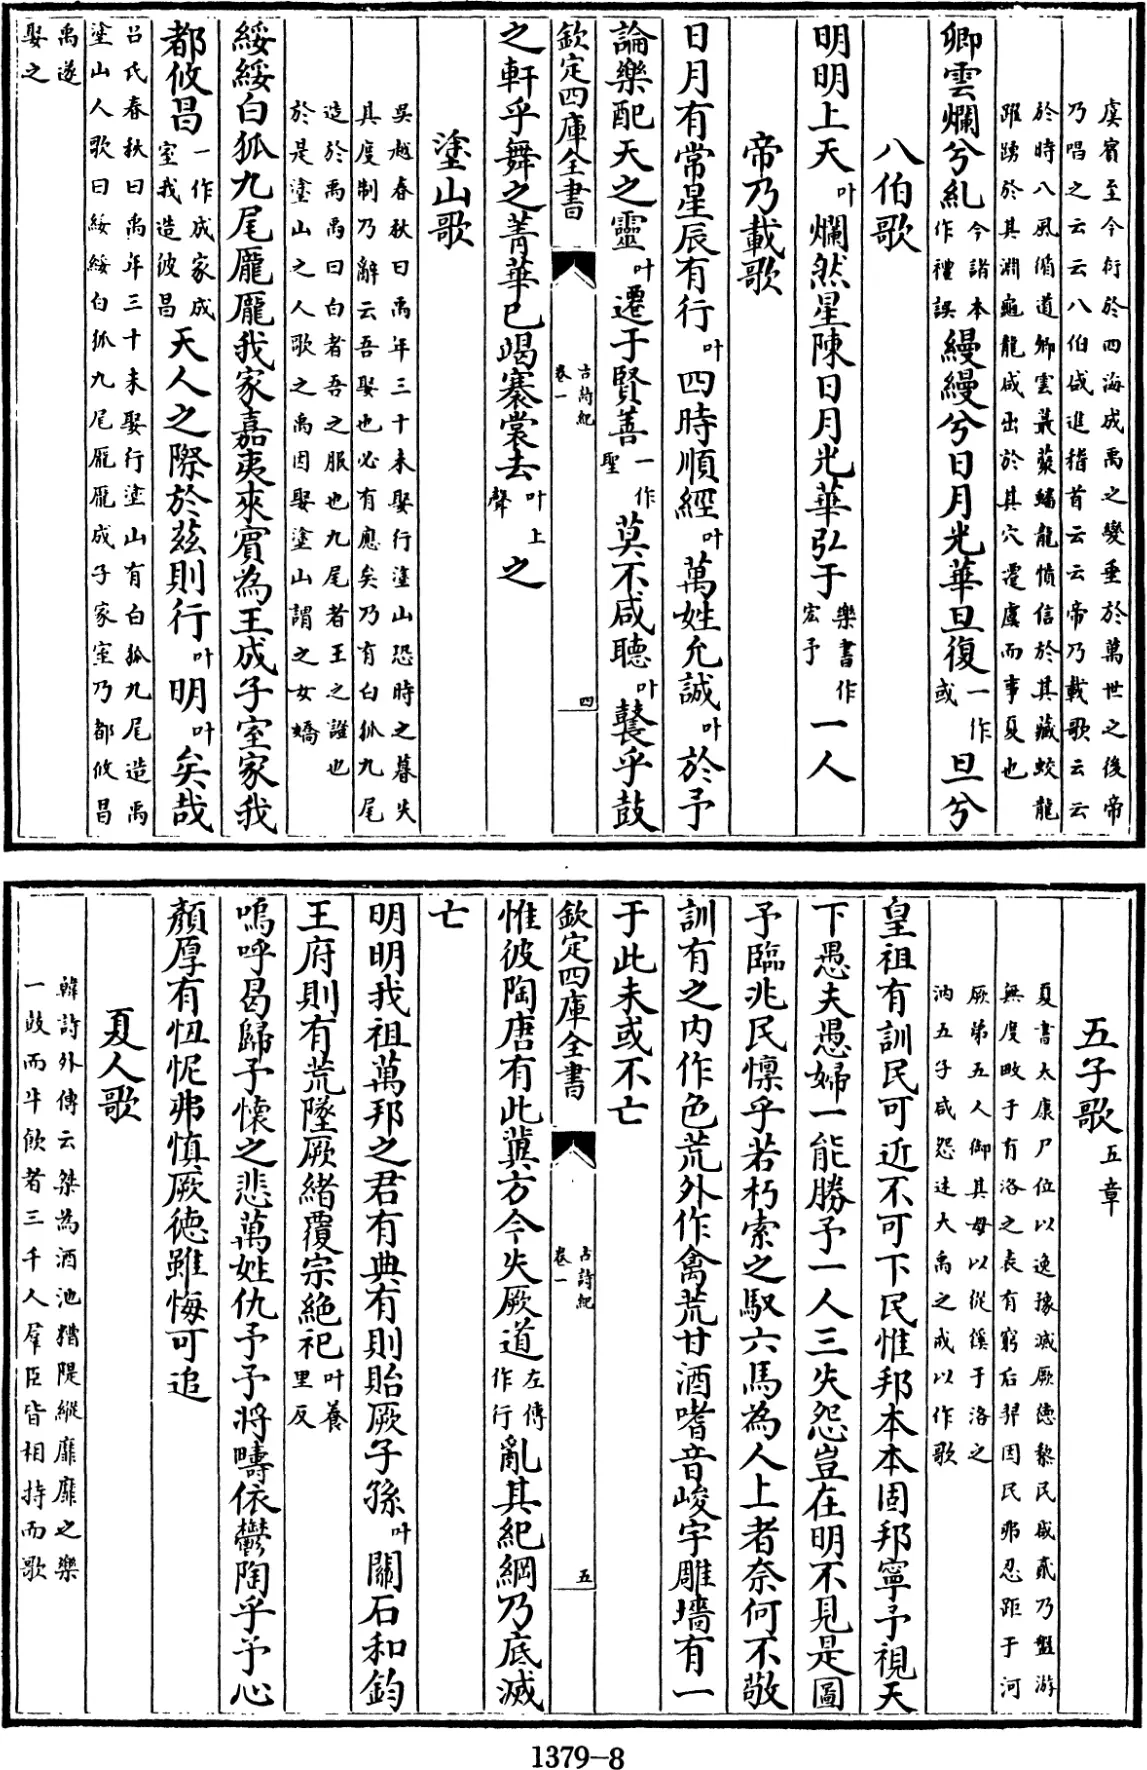 虞賓至今衍於四海成禹之變垂於萬世之後帝
乃唱之云云八伯咸進稽首云云帝乃載歌云云
於時八風循道卿雲叢藂蟠龍僨信於其藏蛟龍
踊躍於其淵龜龍咸出於其穴遷虞而事夏也
卿雲爛兮糺今諸本作禮誤縵縵兮日月光華旦復一作或旦兮
八伯歌
明明上天叶爛然星陳日月光華弘于樂書作宏予一人
帝乃載歌
日月有常星辰有行叶四時順經叶萬姓允誠叶於予
論樂配天之靈叶遷于賢善一作聖莫不咸聽叶鼚乎鼓
欽定四庫全書 古詩紀卷一 四
之軒乎舞之菁華已竭褰裳去叶上聲之
塗山歌
吳越春秋曰禹年三十未娶行塗山恐時之暮失
其度制乃辭云吾娶也必有應矣乃有白狐九尾
造於禹禹曰白者吾之服也九尾者王之證也
於是塗山之人歌之禹因娶塗山謂之女嬌
綏綏白狐九尾龎龎我家嘉夷來賓為王成子室家我
都攸昌一作成家成室我造彼昌天人之際於茲則行叶明叶矣哉
呂氏春秋曰禹年三十未娶行塗山有白狐九尾造禹
塗山人歌曰綏綏白狐九尾龎龎成子家室乃都攸昌
禹遂
娶之
五子歌五章
夏書太康尸位以逸豫滅厥德黎民咸貳乃盤游
無度畋于有洛之表有窮后羿因民弗忍距于河
厥弟五人御其母以從徯于洛之
汭五子咸怨述大禹之戒以作歌
皇祖有訓民可近不可下民惟邦本本固邦寧予視天
下愚夫愚婦一能勝予一人三失怨豈在明不見是圖
予臨兆民懍乎若朽索之馭六馬為人上者奈何不敬
訓有之内作色荒外作禽荒甘酒嗜音峻宇雕墻有一
于此未或不亡
欽定四庫全書 古詩紀卷一 五
惟彼陶唐有此冀方今失厥道左傳作行亂其紀綱乃底滅
亡
明明我祖萬邦之君有典有則貽厥子孫叶關石和鈞
王府則有荒墜厥緒覆宗絶祀叶養里反
嗚呼曷歸予懷之悲萬姓仇予予將疇依鬱陶乎予心
顏厚有忸怩弗慎厥德雖悔可追
夏人歌
韓詩外傳云桀為酒池糟隄縱靡靡之樂
一鼓而牛飲者三千人羣臣皆相持而歌
1379-8